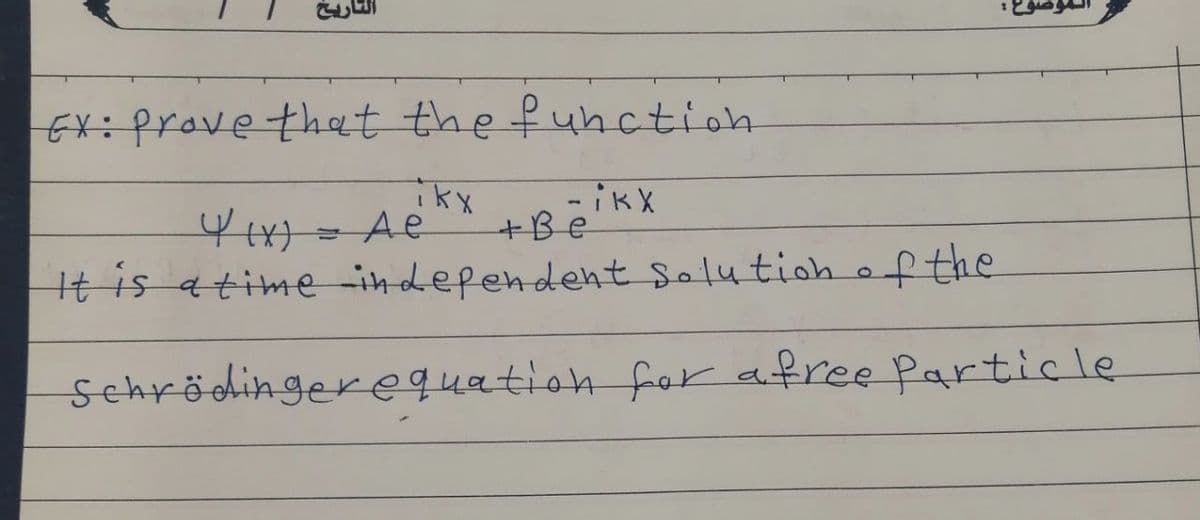 التاريخ / /
الموضوع :
EX: prove that the function
Ψ(x) = Ae^ikx + Be^-ikx
It is a time-independent solution of the
schrödinger equation for a free particle